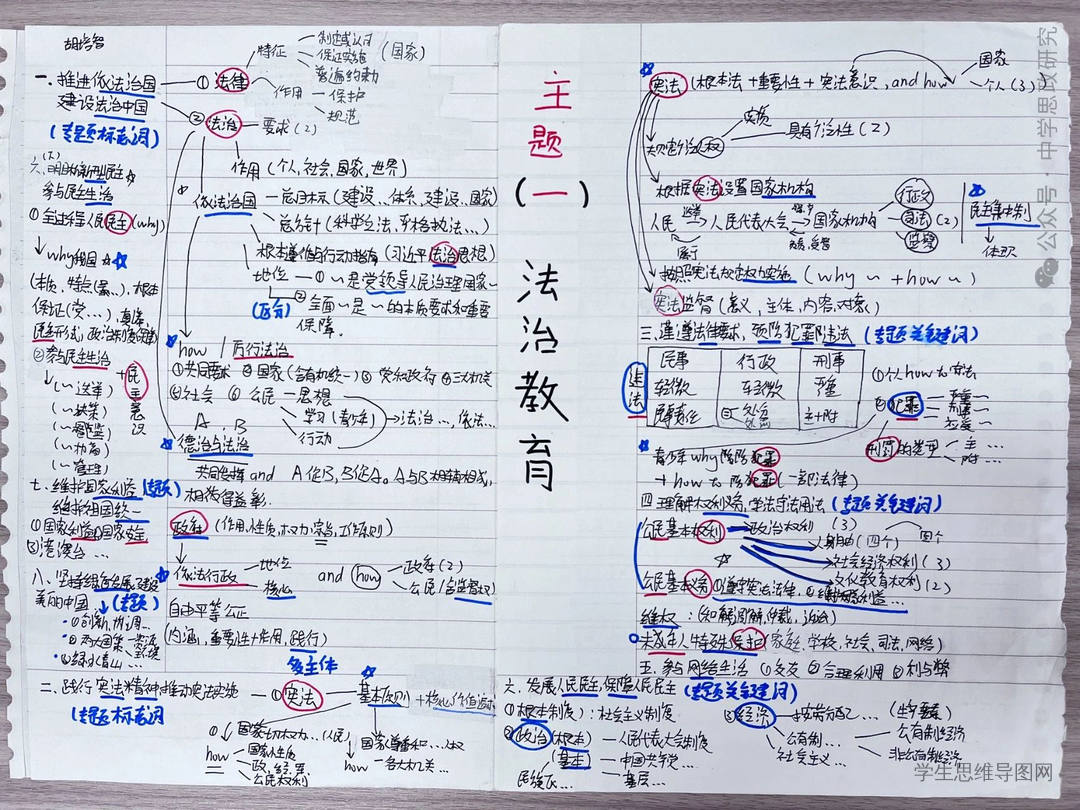 胡培智
一.推进依法治国
建设法治中国
(专题标志词)
①法律
特征
制定或认可
保证实施
普遍约束力
(国家)
作用
保护
规范
②法治
要求(2)
作用(个人,社会,国家,世界)
依法治国
总目标(建设…体系,建设…国家)
总方针(科学立法,严格执法…)
根本遵循与行动指南(习近平法治思想)
地位
①~是党领导人民治理国家~
(区分)
②全面~是~的本质要求和重要
保障。
how
厉行法治
①共同要求 ②国家(含有机统一)③ 党和政府 ④三大机关
⑤社会 ⑥公民
思想
学习(青少年)
行动
法治…依法…
A B
德治与法治
共同发挥and A促B,B促A。A与B相辅相成,
相得益彰.
政府
(作用,性质,权力,宗旨,工作原则)
依法行政
地位
核心
and how
政府(2)
公民(含监督权)
自由平等公正
(内涵,重要性+作用,践行)
多主体
六、
参与民主生活
①全过程人民民主(why)
why我国
②参与民主生活
+民主意识
(~选举)
(~决策)
(~管理)
七.维护国家利益(专题)
维护祖国统一
①国家利益,国家安全
②港澳台…
八、
美丽中国
(专题)
①创新,协调…
③绿水青山…
二.践行宪法精神,推动宪法实施
(专题标志词
①宪法
基本原则
+核心价值追求
①国家一切权力…(人民)
how
国家性质
政,经,算
公民权利
国家尊重和…人权
how
各大机关…
主题(一)法治教育
宪法
(根本法+重要性+宪法意识,and how
国家
个人(3))
具有个法性(2)
根据宪法设置国家机构
人民
人民代表大会
国家机构
行政
司法(2)
监察
民主集中制
体现
按照宪法规定权力实施(why~+how~)
宪法监督(意义,主体,内容,对象)
三、遵守法律要求,预防犯罪防违法(专题关键词)
违法
民事 行政 刑事
轻微 轻微 严重
民事责任 主+附
①个人how to守法
②犯罪
严重~
刑事~
应受~
刑罚的类型
主…
附…
青少年why预防犯罪
+how to防犯罪(一部法律)
四.理解权利义务,学法守法用法(专题关键词)
公民基本权利
政治权利(3)
人身自由(四个)
四个
社会经济权利(3)
文化教育权利(2)
公民基本义务
①遵守宪法法律,②维护国家利益…
维权:(和解,调解,仲裁,诉讼)
未成年人特殊保护(家庭,学校,社会,司法,网络)
五.参与网络生活 ①交友 ②合理利用 ③利与弊
六.发展人民民主,保障人民民主(专题关键词)
①根本制度:社会主义制度
②政治
(根本)
人民代表大会制度
(基本)
中国共产党…
民族区…
基层…
③经济
按劳分配…
公有制…
公有制经济
非公有制经济
社会主义…
公众号·中学思政研究
学生思维导图网